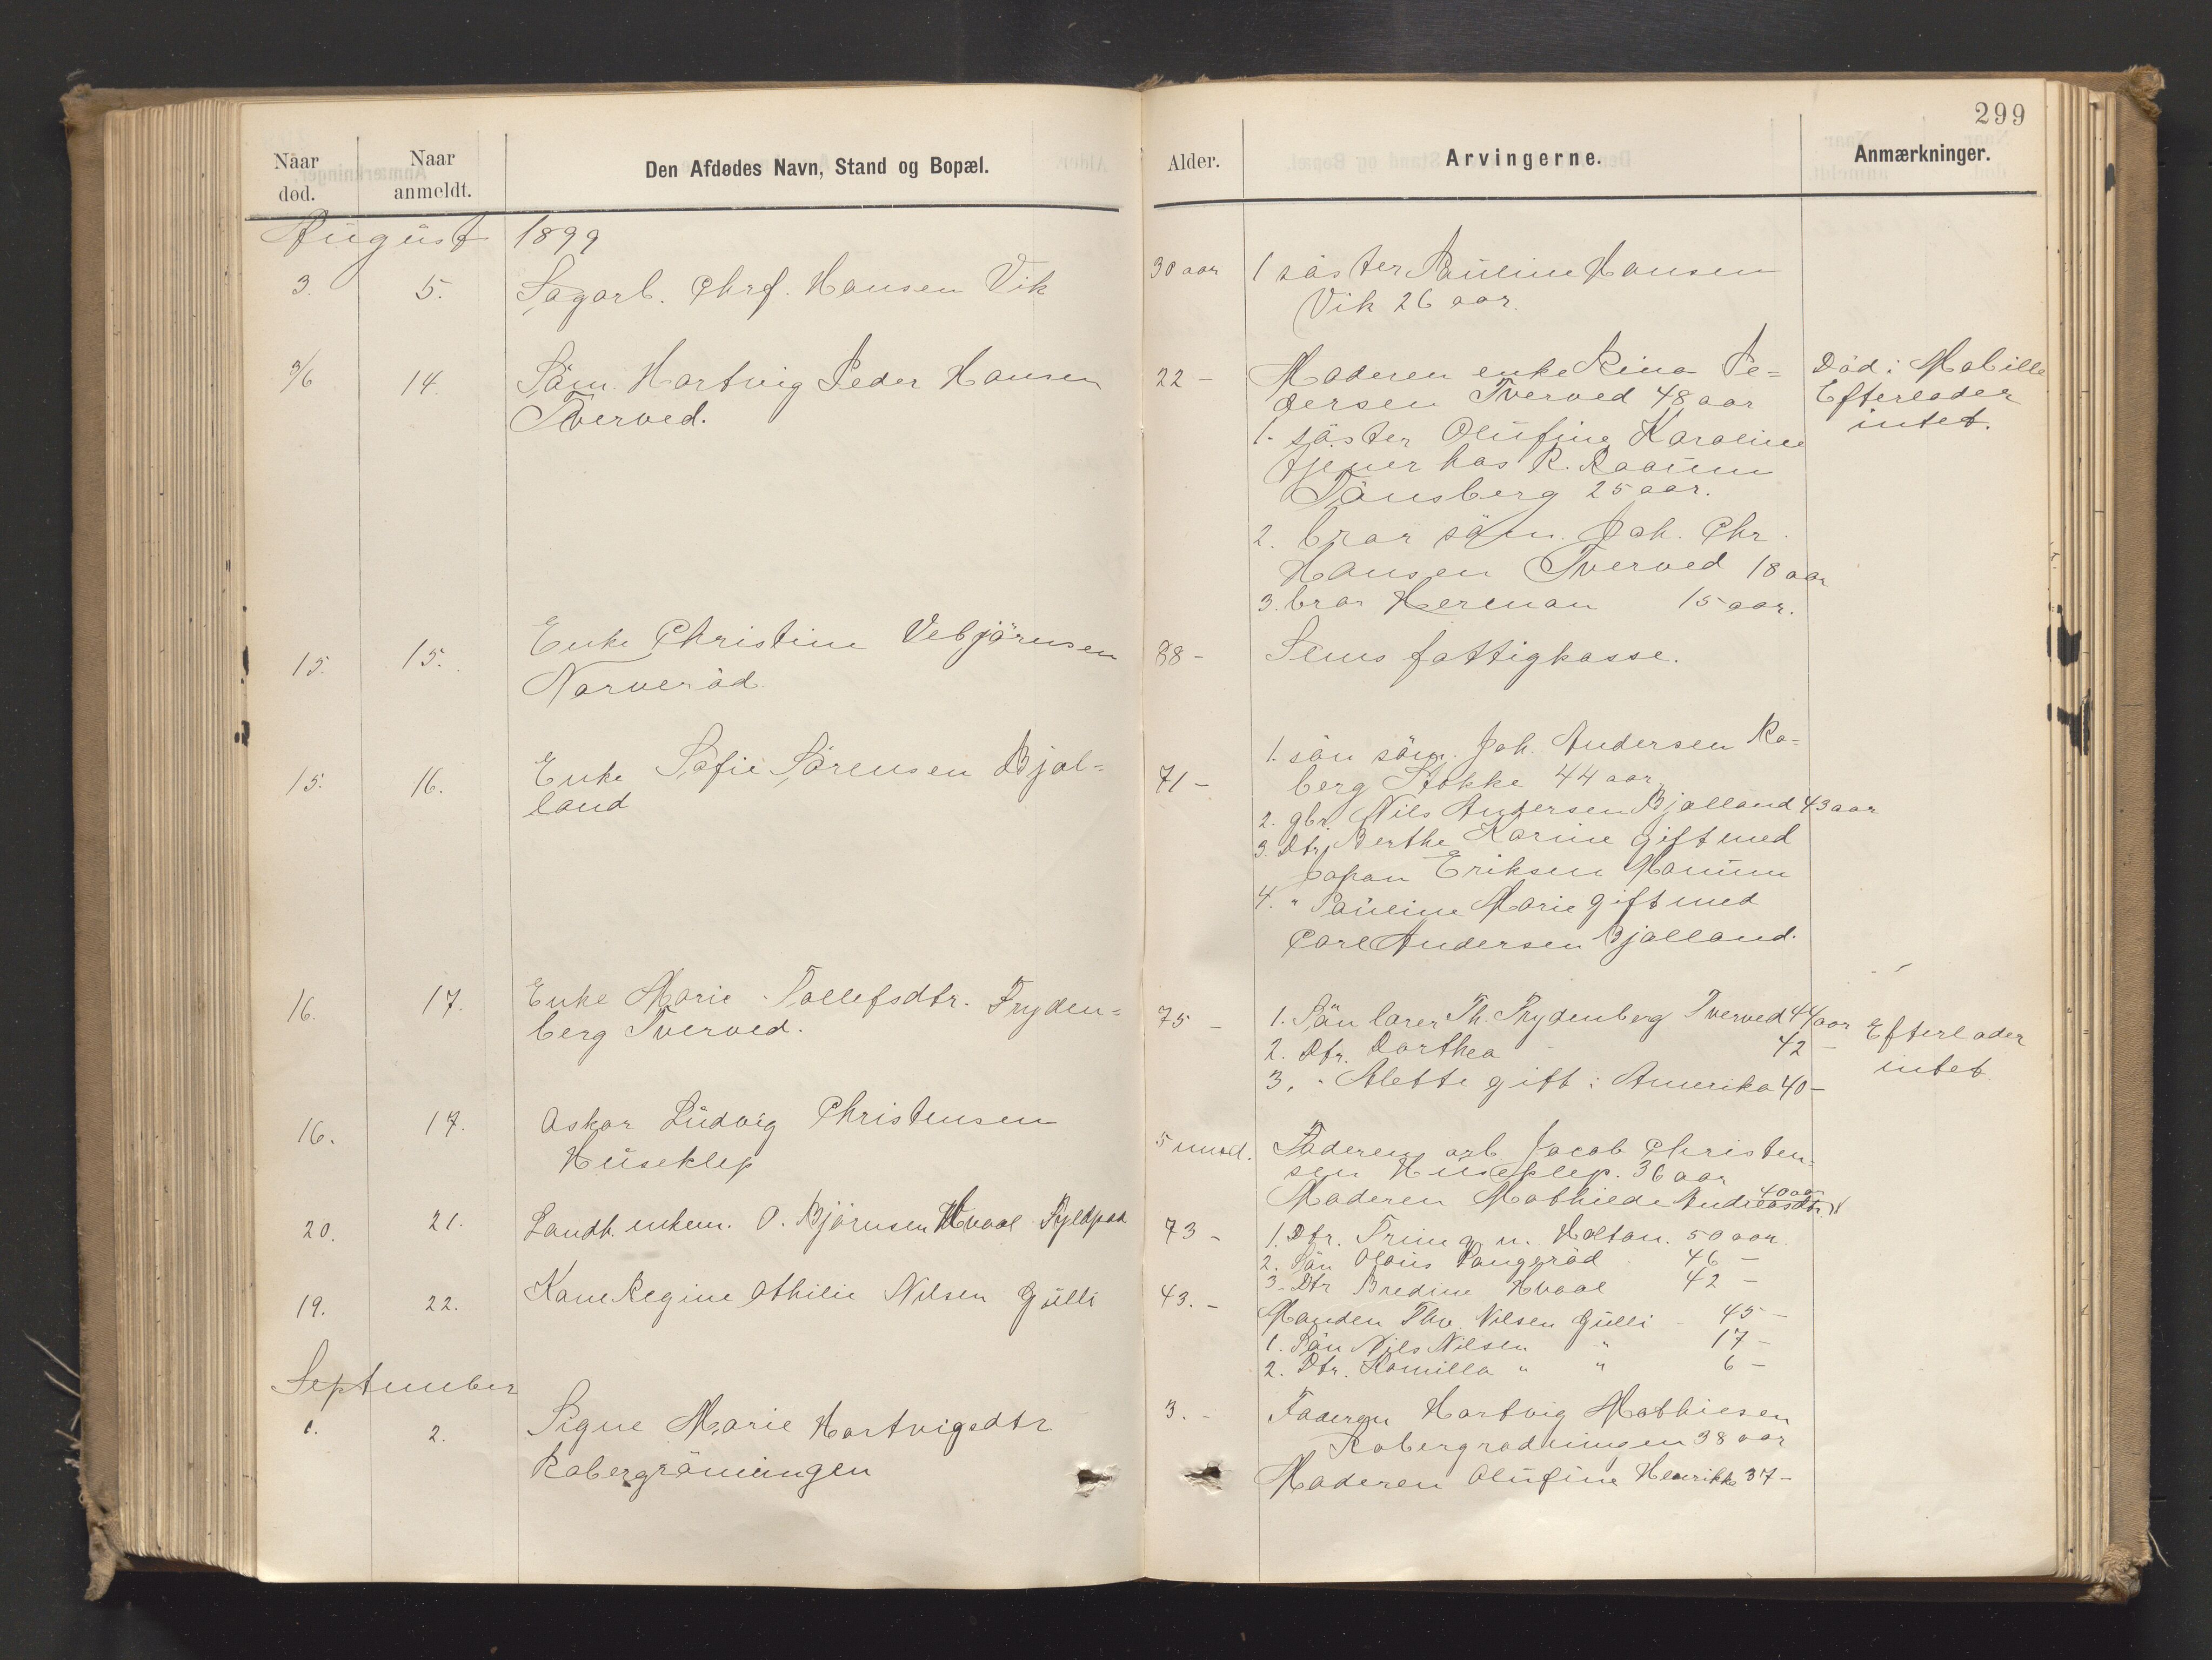 299
Naar død.
Naar anmeldt.
Den Afdødes Navn, Stand og Bopæl.
Alder.
Arvingerne.
Anmærkninger.
August 1899
3. 5. Sagarb. Chrf. Hansen Vik
30 aar
1 söster Pauline Hansen
Vik 26 aar.
3/6 14. Söm. Hartvig Peder Hansen
Tverved.
22 -
Moderen enke Rina Pe=
dersen Tverved 48 aar
1. söster Olufine Karoline
tjener hos R. Raaum
Tönsberg 25 aar.
2. bror söm. Joh. Chr.
Hansen Tverved 18 aar
3. bror Herman 15 aar.
Död i Mobille
Efterlader
intet.
15. 15. Enke Christine Vebjörnsen
Narveröd
88 -
Sems fattigkasse.
15. 16. Enke Sofie Sörensen Bjol=
land
71 -
1. sön söm. Joh. Andersen Ro=
berg Stokke 44 aar
2. gbr. Nils Andersen Bjolland 43 aar
3. Dtr. Berthe Karine gift med
Johan Eriksen
4. " Pauline Marie gift med
Carl Andersen Bjolland.
16. 17. Enke Marie Tollefsdtr. Fryden=
berg Tverved.
75 -
1. Sön lærer Th. Frydenberg Tverved 44 aar
2. Dtr. Dorthea 42 -
3. " Alette gift i Amerika 40 -
Efterlader
intet
16. 17. Oskar Ludvig Christensen
Huseklep
5 mnd.
Faderen arb. Jacob Christen=
sen Huseklep. 36 aar
Moderen Mathilde Andreasdtr. 40 aar
20. 21. Landh. enkem. O. Björnsen Hvaal
73 -
1. Dtr. Trine g. m. Holtan. 50 aar.
2. Sön Olaus Vangeröd 46 -
3. Dtr Bredine Hvaal 42 -
19. 22. Kone Regine Othilie Nilsen Gulli
43. -
Manden Thv. Nilsen Gulli - 45 -
1. Sön Nils Nilsen " 17 -
2. Dtr. Kamilla " " 6 -
September
1. 2. Signe Marie Hartvigsdtr
Robergröningen
3. -
Faderen Hartvig Mathiesen
Robergrödningen 38 aar
Moderen Olufine Henrikke 37 -